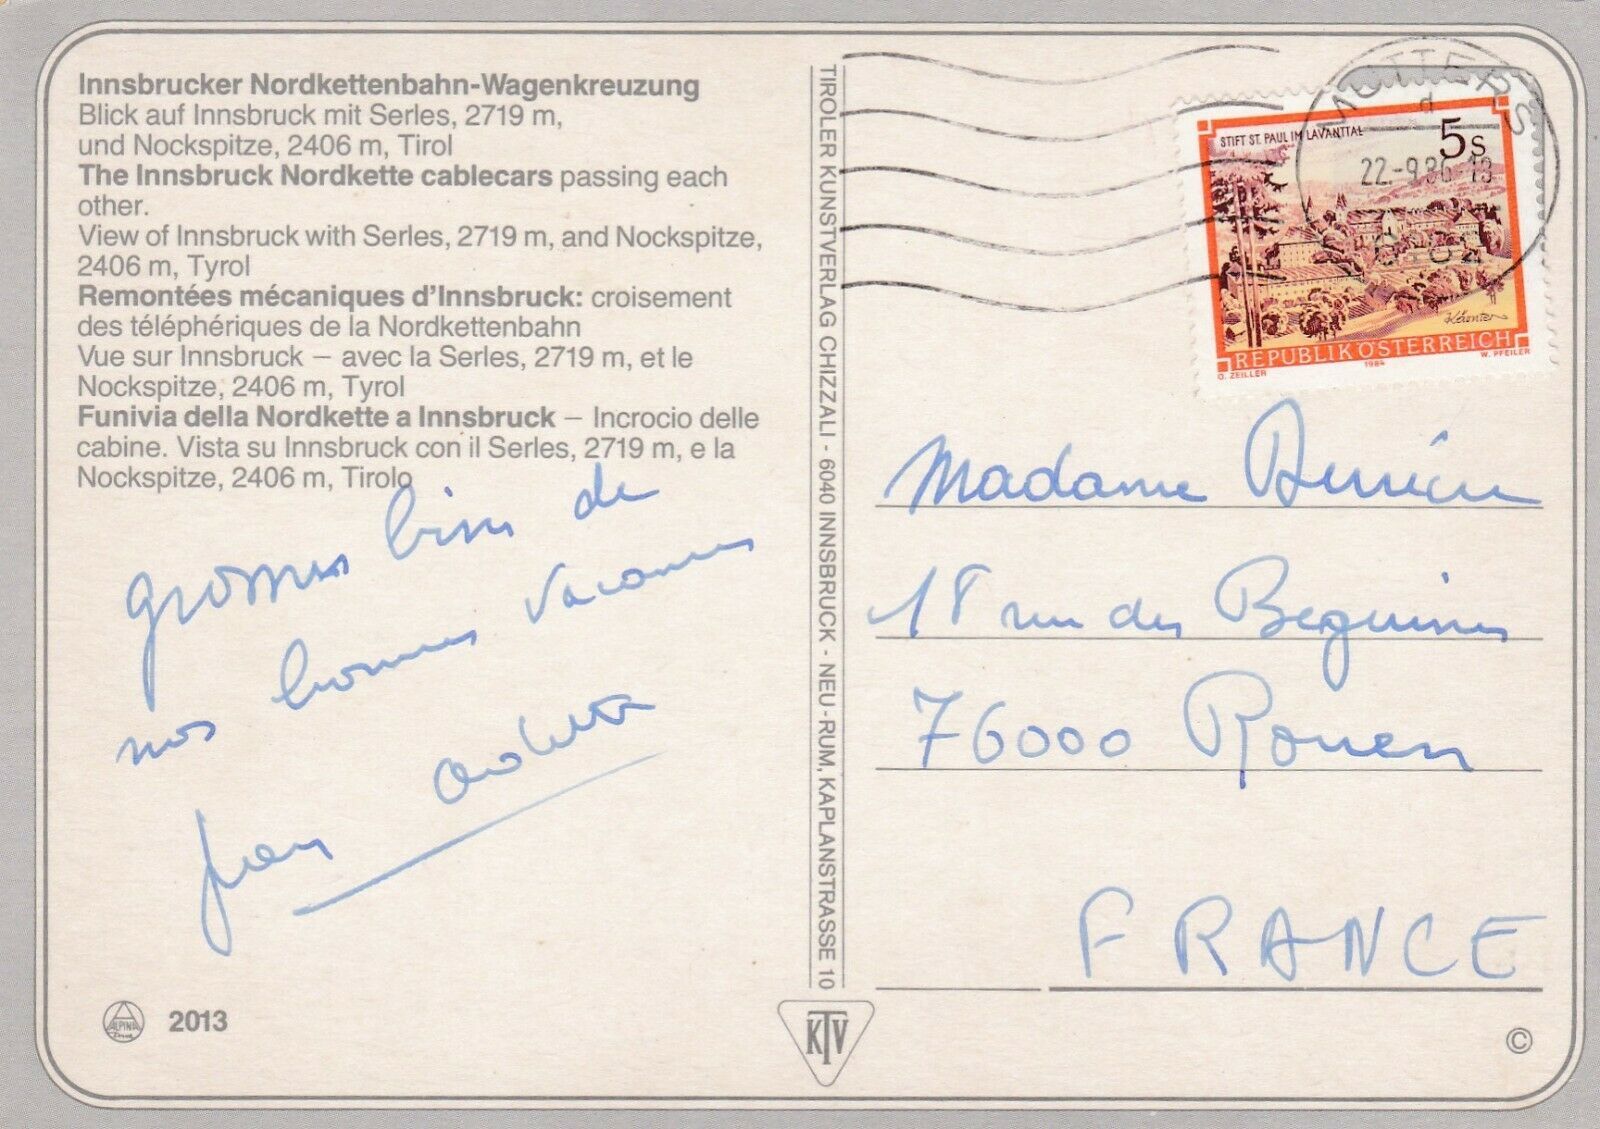 Innsbrucker Nordkettenbahn-Wagenkreuzung
Blick auf Innsbruck mit Serles, 2719 m,
und Nockspitze, 2406 m, Tirol
The Innsbruck Nordkette cablecars passing each
other.
View of Innsbruck with Serles, 2719 m, and Nockspitze,
2406 m, Tyrol
Remontées mécaniques d'Innsbruck: croisement
des téléphériques de la Nordkettenbahn
Vue sur Innsbruck – avec la Serles, 2719 m, et le
Nockspitze, 2406 m, Tyrol
Funivia della Nordkette a Innsbruck – Incrocio delle
cabine. Vista su Innsbruck con il Serles, 2719 m, e la
Nockspitze, 2406 m, Tirolo
grosses bises de
nos bonnes vacances
Jean
ALPINA
2013
TIROLER KUNSTVERLAG CHIZZALI - 6040 INNSBRUCK - NEU-RUM, KAPLANSTRASSE 10
KTV
MUTTERS
22.-9.86-13
STIFT ST. PAUL IM LAVANTTAL
5s
Kärnten
REPUBLIK ÖSTERREICH
O. ZEILLER 1984 W. PFEILER
Madame
18 rue des Beguines
76000 Rouen
FRANCE
©